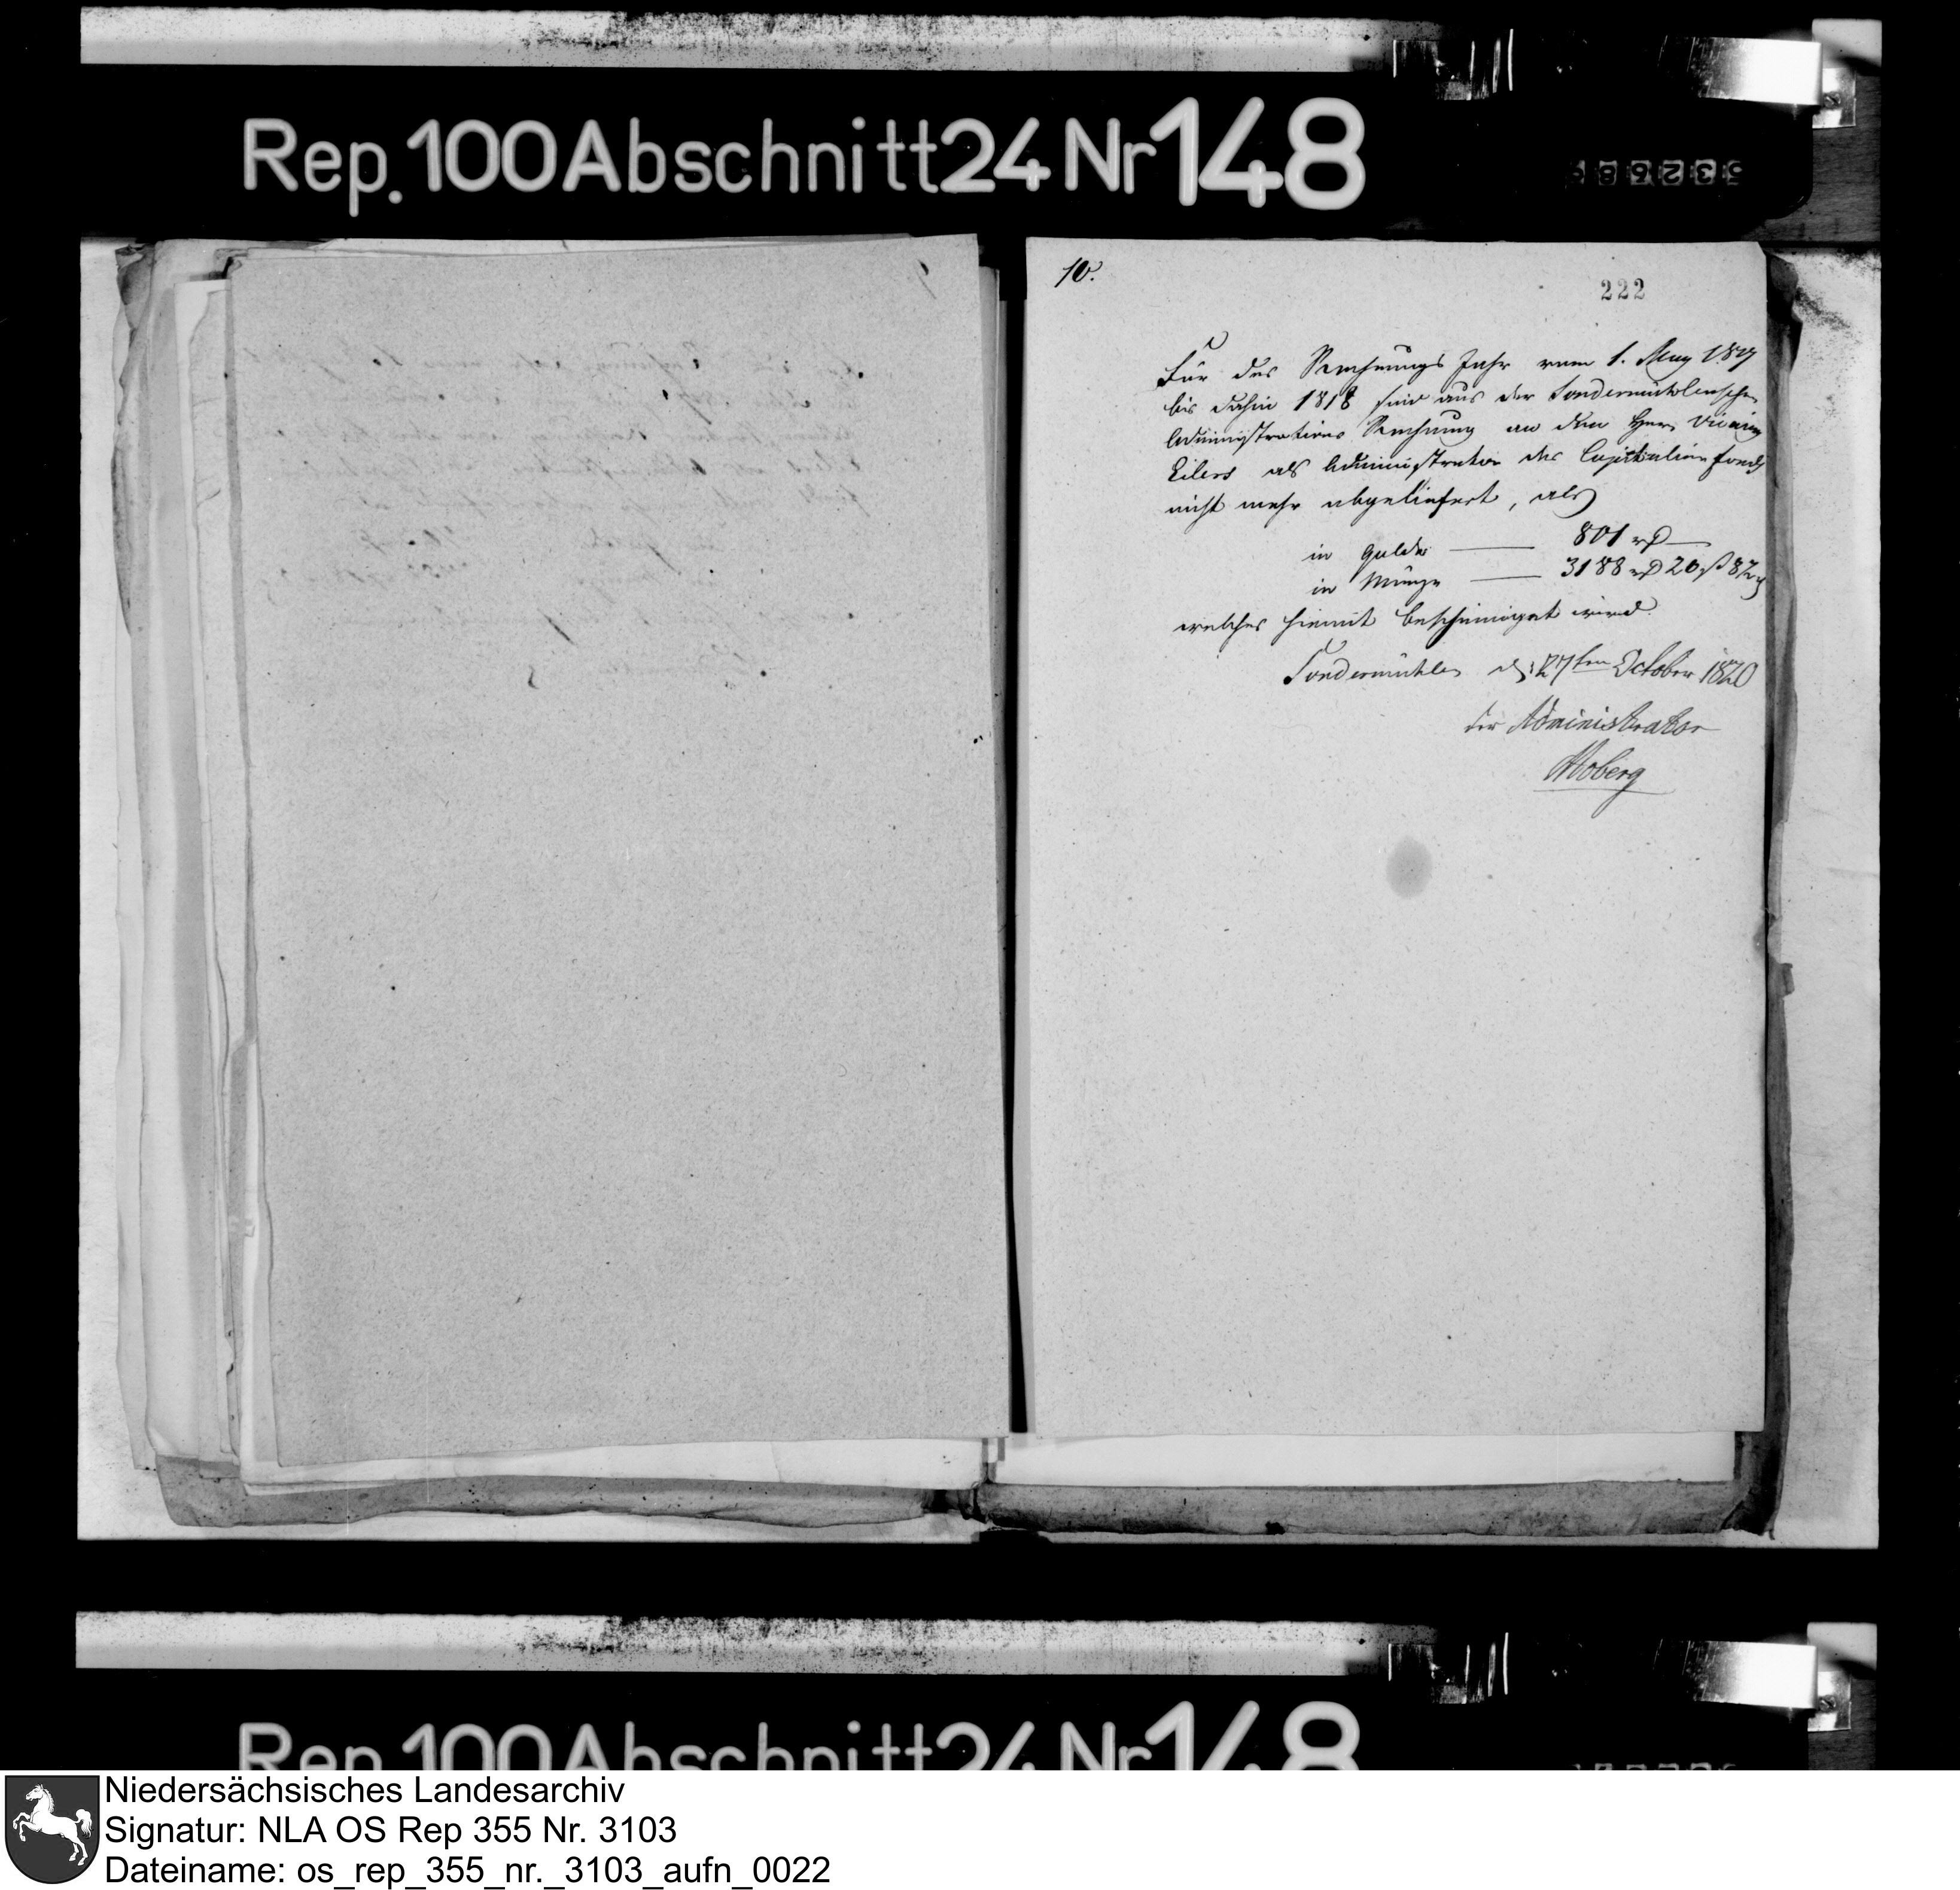 Rep. 100 Abschnitt 24 Nr 148
10.
222
Für das Rechnungs Jahr vom 1. May 1817
bis dahin 1818 sind aus der Sondermühlenschen
Administrations Rechnung an den Herrn Vicarius
Eilers als Administrator des Capitalien fonds
nicht mehr abgeliefert, als
in Golde — 801 rₜ —
in Münze — 3188 rₜ 20 ß 8½ ₰
welches hiemit bescheiniget wird.
Sondermühlen d: 27ten October 1820
der Administrator
Moberg
Rep. 100 Abschnitt 24 Nr 148
Niedersächsisches Landesarchiv
Signatur: NLA OS Rep 355 Nr. 3103
Dateiname: os_rep_355_nr._3103_aufn_0022